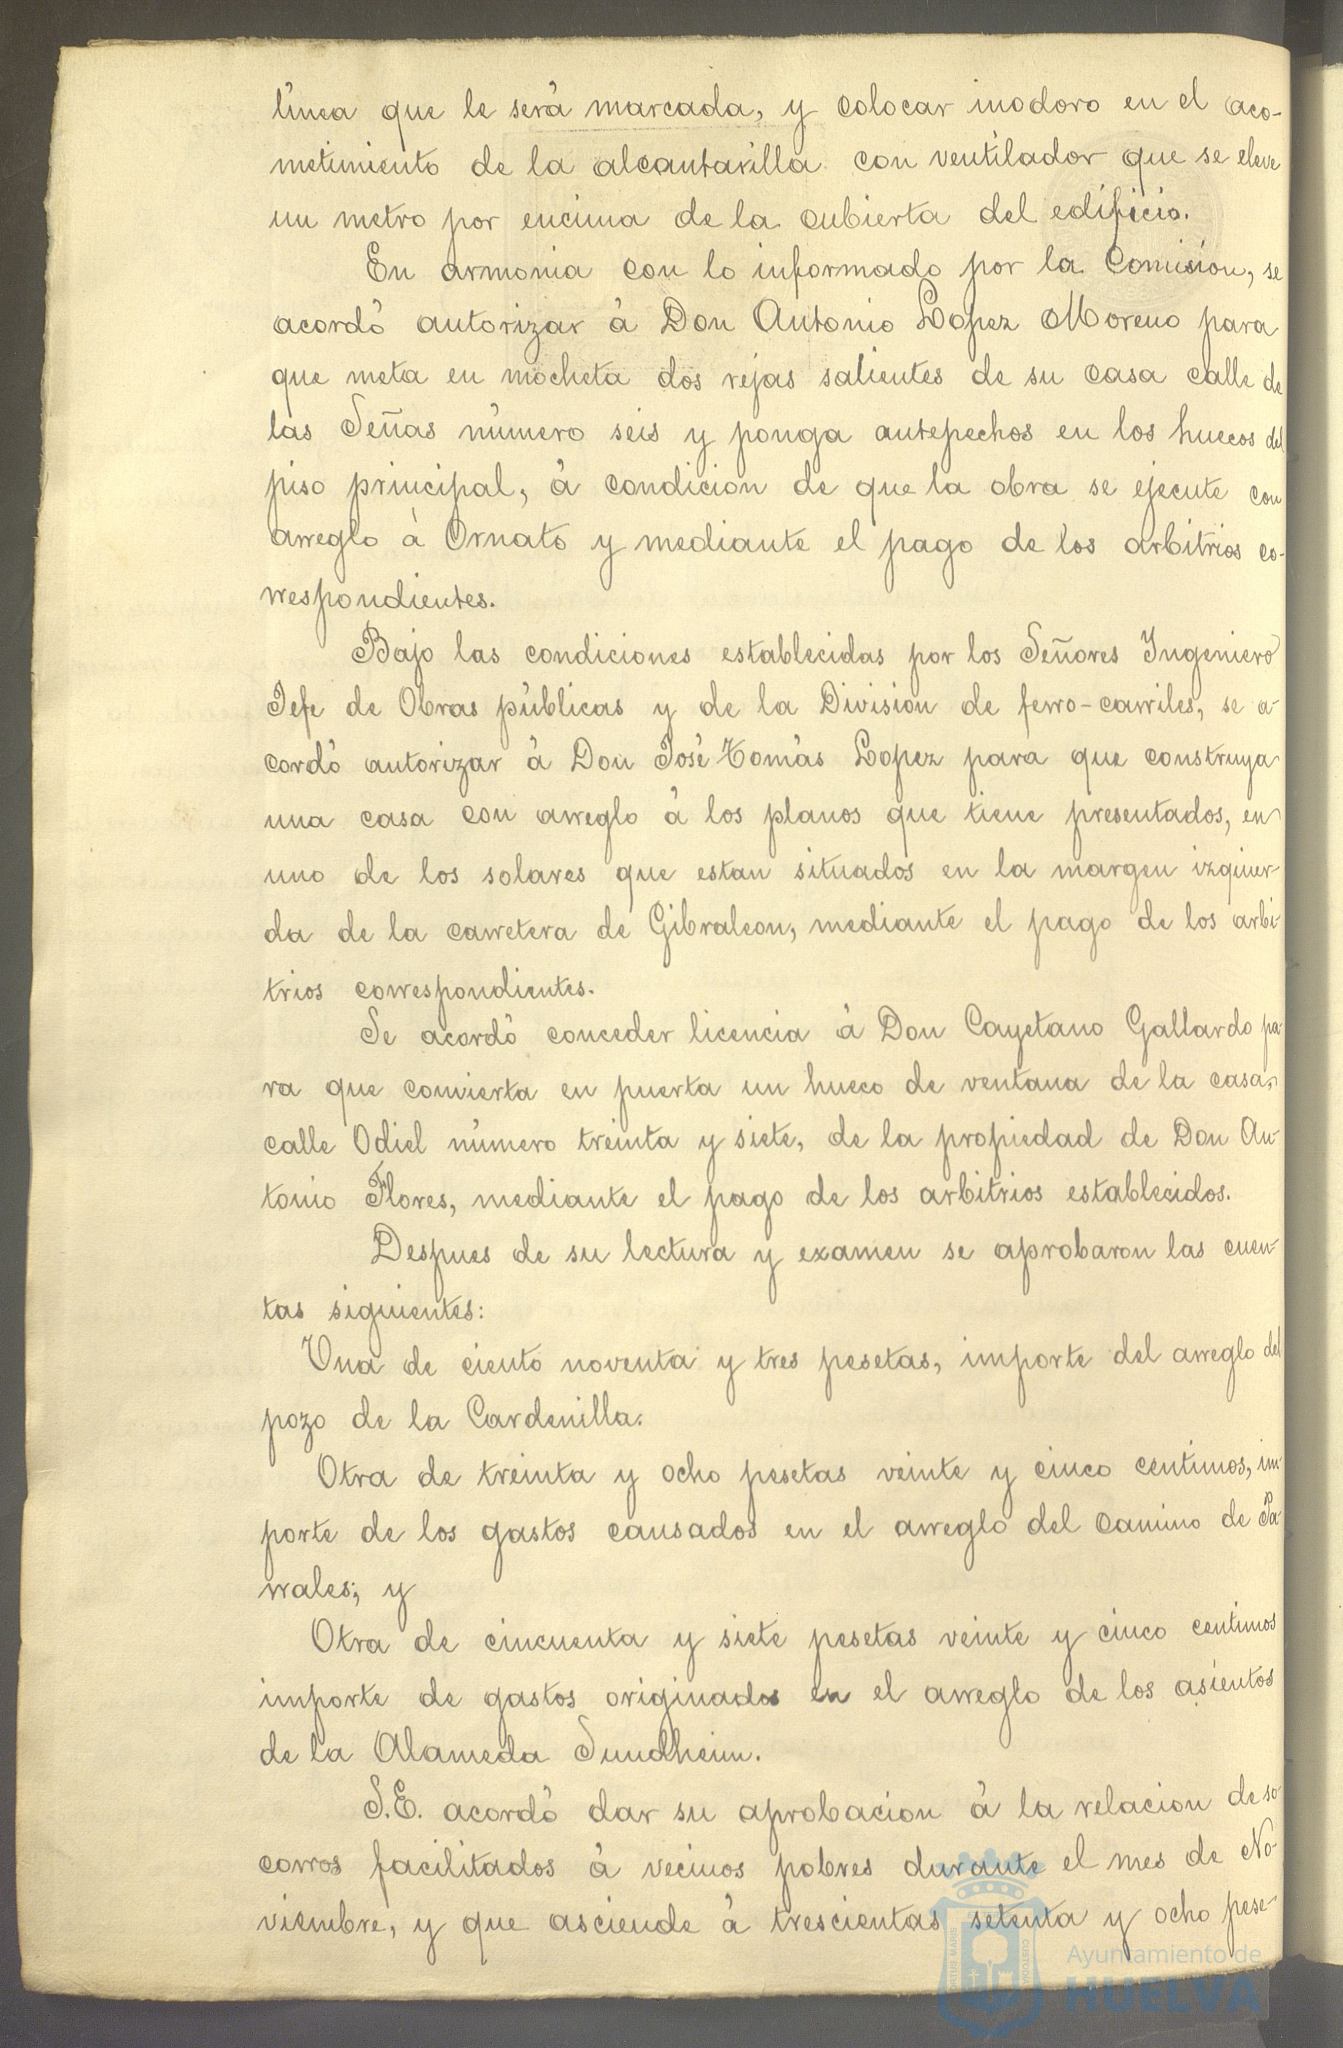 línea que le será marcada, y colocar inodoro en el aco-
metimiento de la alcantarilla con ventilador que se eleve
un metro por encima de la cubierta del edificio.
En armonia con lo informado por la Comisión, se
acordó autorizar á Don Antonio Lopez Moreno para
que meta en mocheta dos rejas salientes de su casa calle de
las Señas número seis y ponga antepechos en los huecos del
piso principal, á condicion de que la obra se ejecute con
arreglo á Ornato y mediante el pago de los arbitrios co-
rrespondientes.
Bajo las condiciones establecidas por los Señores Ingeniero
Jefe de Obras públicas y de la Division de ferro-carriles, se a-
cordó autorizar á Don José Tomás Lopez para que construya
una casa con arreglo á los planos que tiene presentados, en
uno de los solares que estan situados en la margen izquier-
da de la carretera de Gibraleon, mediante el pago de los arbi-
trios correspondientes.
Se acordó conceder licencia á Don Cayetano Gallardo pa-
ra que convierta en puerta un hueco de ventana de la casa,
calle Odiel número treinta y siete, de la propiedad de Don An-
tonio Flores, mediante el pago de los arbitrios establecidos.
Despues de su lectura y examen se aprobaron las cuen-
tas siguientes:
Una de ciento noventa y tres pesetas, importe del arreglo del
pozo de la Cardenilla.
Otra de treinta y ocho pesetas veinte y cinco centimos, im-
porte de los gastos causados en el arreglo del camino de Pa-
rrales; y
Otra de cincuenta y siete pesetas veinte y cinco centimos
importe de gastos originados en el arreglo de los asientos
de la Alameda Sundheim.
S.E. acordó dar su aprobacion á la relacion de so-
corros facilitados á vecinos pobres durante el mes de No-
viembre, y que asciende á trescientas setenta y ocho pese-
Ayuntamiento de
HUELVA